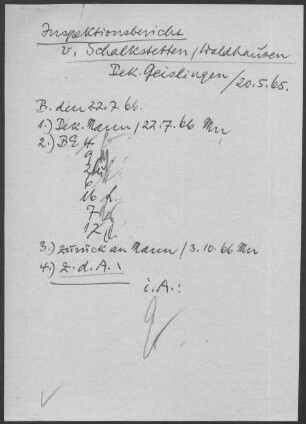 Inspektionsbericht
v. Schalkstetten/Waldhausen
Dek. Geislingen/20.5.65.
B. den 22.7.66.
1.) Dek. Mann/22.7.66 Mn
2.) BE 4
9
2
6
16
7
17
3.) zurück an Mann/3.10.66 Mn
4.) z.d.A.!
i.A.: